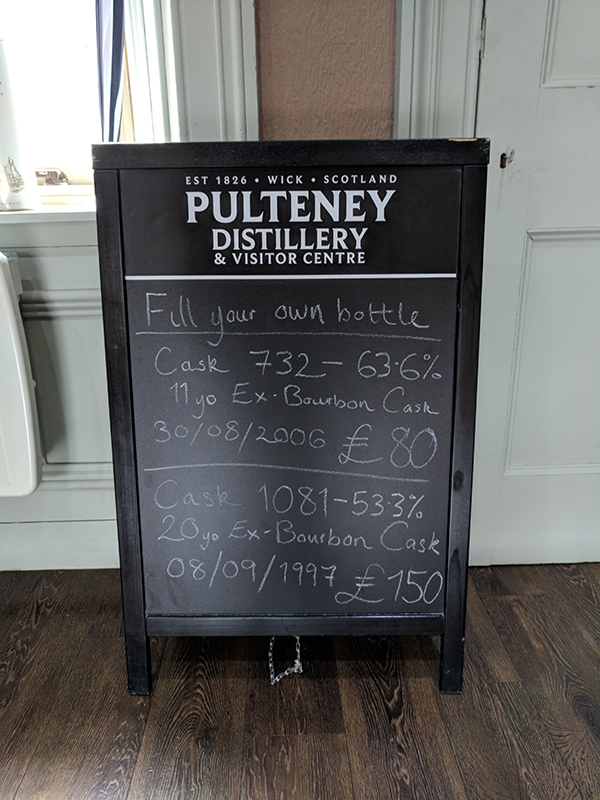 EST 1826 • WICK • SCOTLAND
PULTENEY
DISTILLERY
& VISITOR CENTRE
Fill your own bottle
Cask 732 – 63.6%
11yo Ex-Bourbon Cask
30/08/2006 £80
Cask 1081-53.3%
20yo Ex-Bourbon Cask
08/09/1997 £150